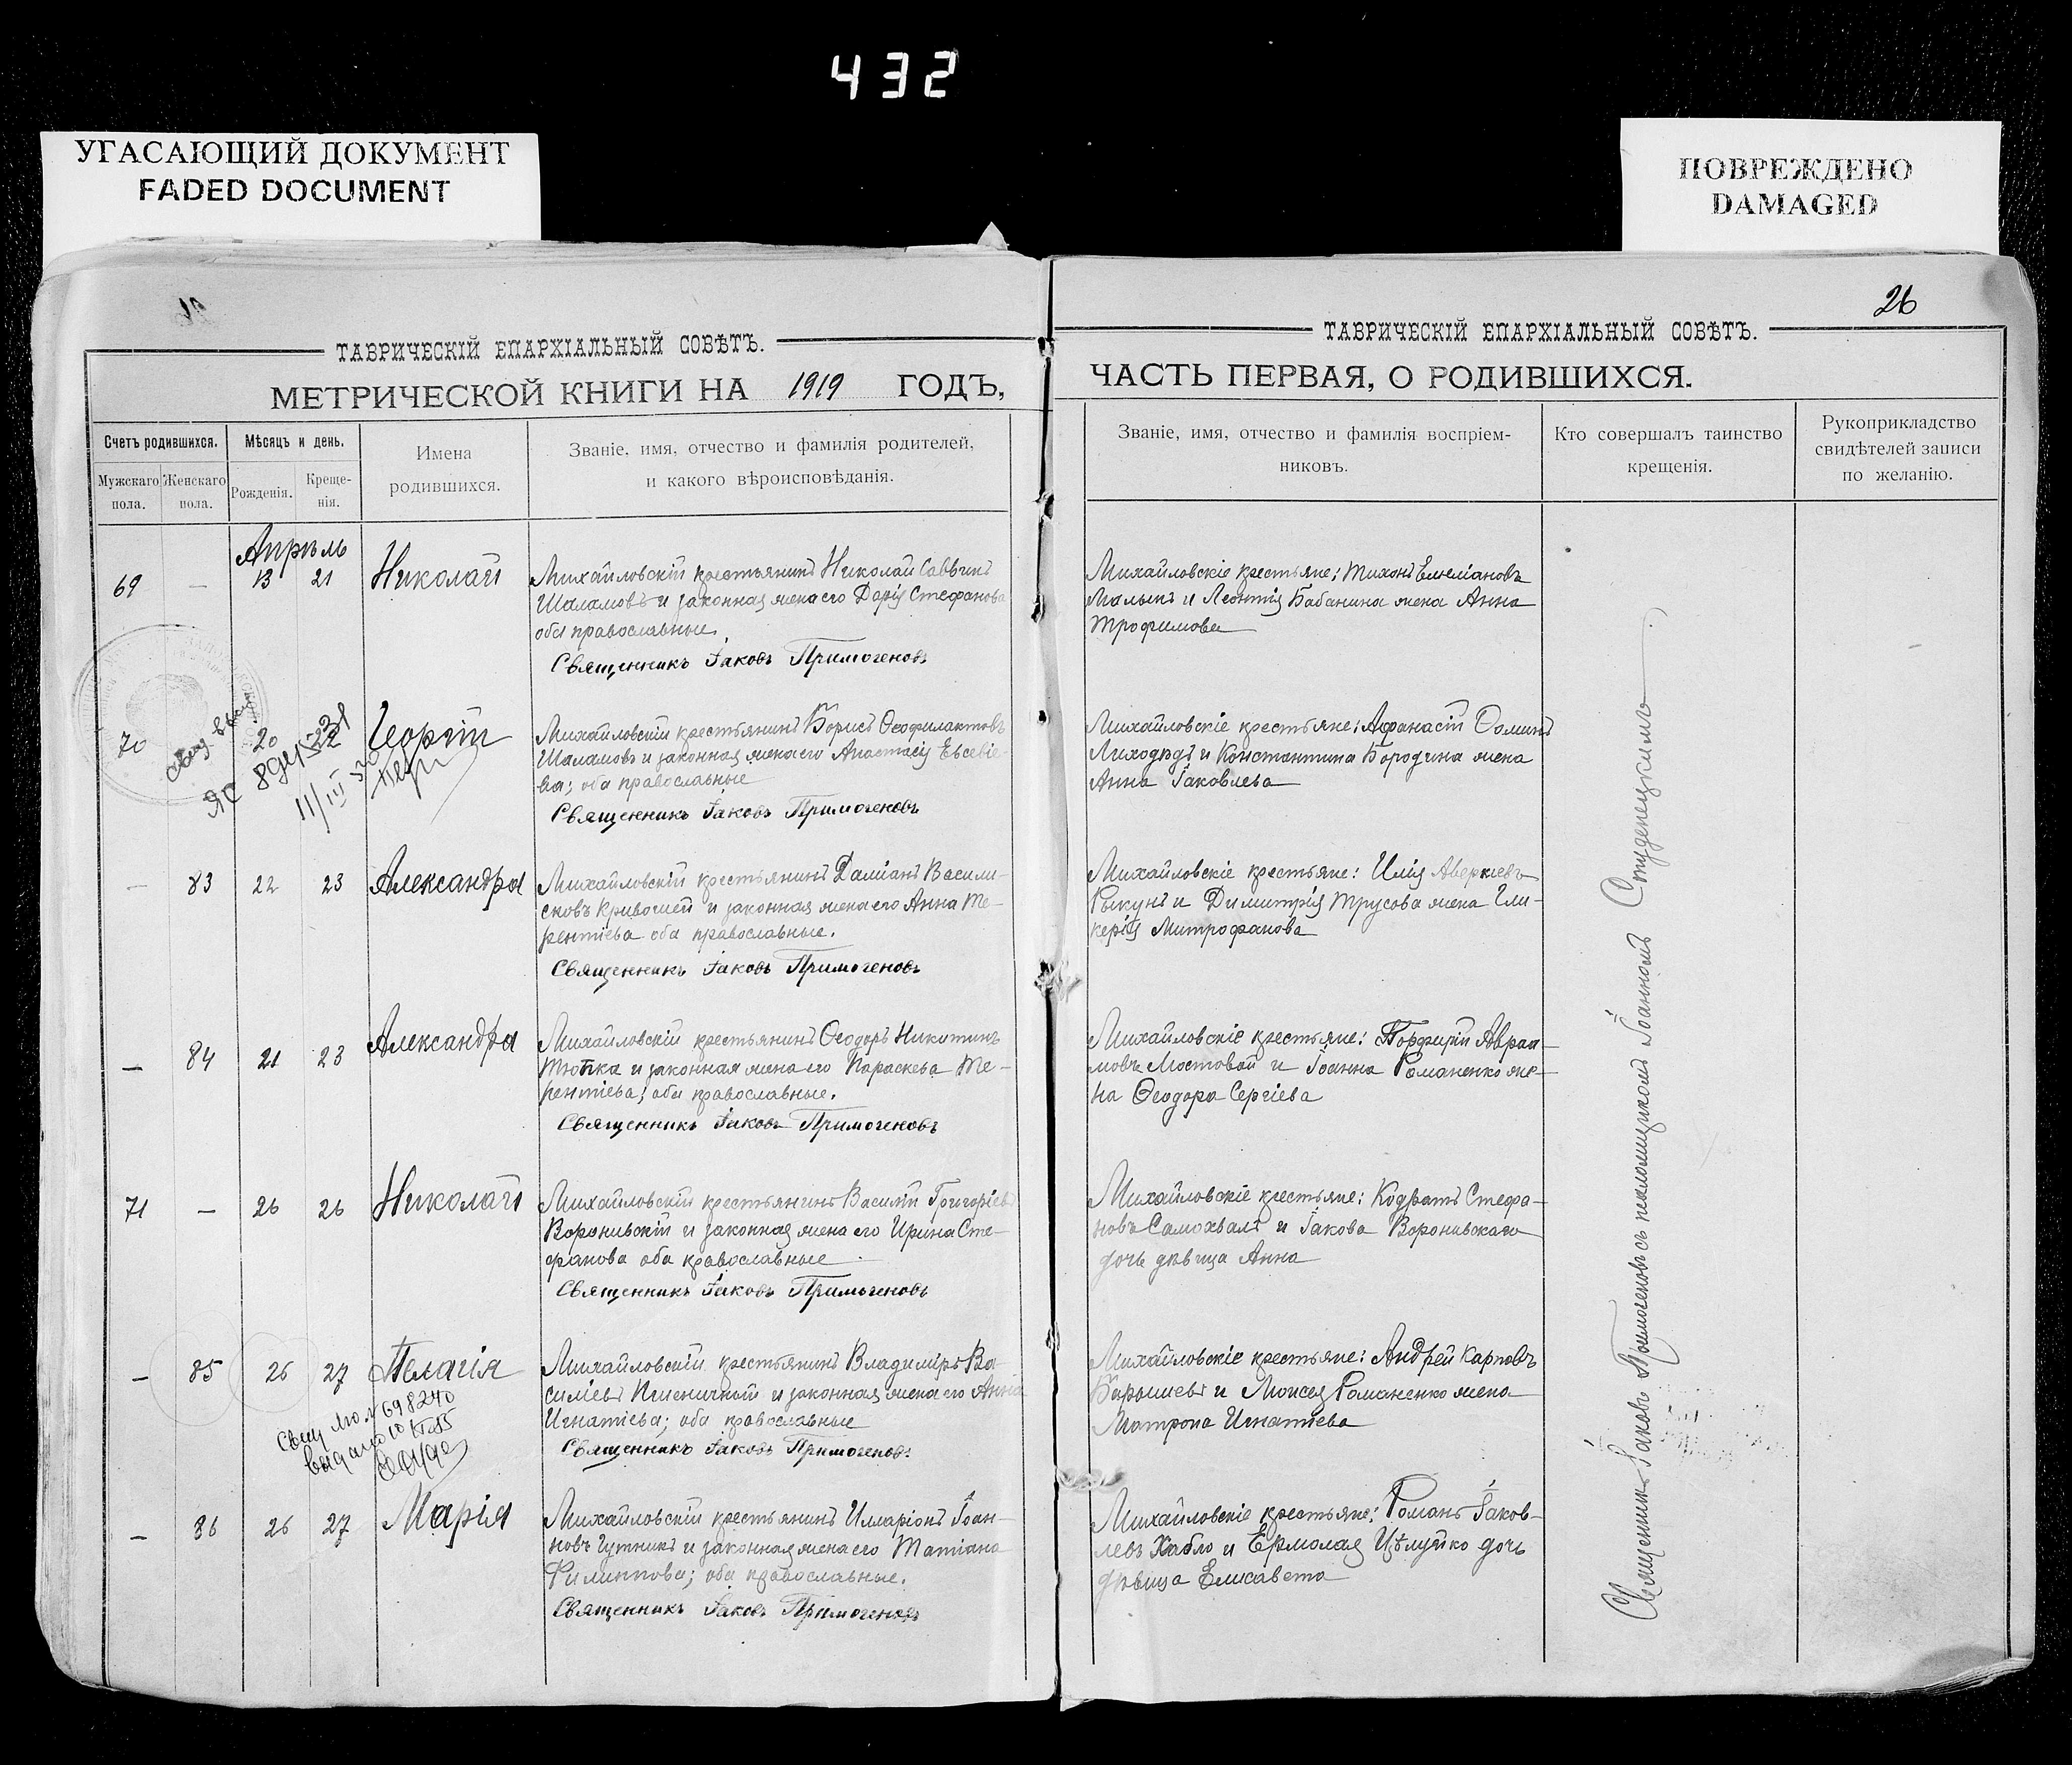 432
УГАСАЮЩИЙ ДОКУМЕНТ
FADED DOCUMENT
ПОВРЕЖДЕНО
DAMAGED
26
ТАВРИЧЕСКІЙ ЕПАРХІАЛЬНЫЙ СОВѢТЪ.
МЕТРИЧЕСКОЙ КНИГИ НА 1919 ГОДЪ,
Счетъ родившихся.
Мужскаго пола.
Женскаго пола.
Мѣсяцъ и день.
Рожденія.
Креще-
нія.
Имена
родившихся.
Званіе, имя, отчество и фамилія родителей,
и какого вѣроисповѣданія.
ТАВРИЧЕСКІЙ ЕПАРХІАЛЬНЫЙ СОВѢТЪ.
ЧАСТЬ ПЕРВАЯ, О РОДИВШИХСЯ.
Званіе, имя, отчество и фамилія воспріем-
никовъ.
Кто совершалъ таинство
крещенія.
Рукоприкладство
свидѣтелей записи
по желанію.
Апрѣль
69 — 13 21 Николай
Михайловскій крестьянинъ Николай Саввинъ
Шаламовъ и законная жена его Дарія Стефанова
оба православные.
Священникъ Іаковъ Примогеновъ
Михайловскіе крестьяне: Тихонъ Емеліановъ
Малыкъ и Леонтія Бабанина жена Анна
Трофимова
70 20 22 Георгій
Михайловскій крестьянинъ Борисъ Ѳеофилактовъ
Шаламовъ и законная жена его Анастасія Евсевіе-
ва; оба православные
Священникъ Іаковъ Примогеновъ
Михайловскіе крестьяне: Афанасій Ѳоминъ
Лиходѣдъ и Константина Бородина жена
Анна Іаковлева
11/III
— 83 22 23 Александра
Михайловскій крестьянинъ Даміанъ Васили-
сковъ Кривошей и законная жена его Анна Те-
рентіева оба православные.
Священникъ Іаковъ Примогеновъ
Михайловскіе крестьяне: Илія Аверкіевъ
Рыкунъ и Димитрія Трусова жена Гли-
керія Митрофанова
— 84 21 23 Александра
Михайловскій крестьянинъ Ѳеодоръ Никитинъ
Тютка и законная жена его Параскева Те-
рентіева; оба православные.
Священникъ Іаковъ Примогеновъ
Михайловскіе крестьяне: Порфирій Авраа-
мовъ Мостовой и Іоанна Романенко же-
на Ѳеодора Сергіева
71 — 26 26 Николай
Михайловскій крестьянинъ Василій Григоріевъ
Воронивскій и законная жена его Ирина Сте-
фанова оба православные
Священникъ Іаковъ Примогеновъ
Михайловскіе крестьяне: Кодратъ Стефа-
новъ Самохвалъ и Іакова Воронивскаго
дочь дѣвица Анна
— 85 26 27 Пелагія
Михайловскій крестьянинъ Владиміръ Ва-
силіевъ Пшеничный и законная жена его Анна
Игнатіева; оба православные
Священникъ Іаковъ Примогеновъ
Михайловскіе крестьяне: Андрей Карповъ
Барышевъ и Моисея Романенко жена
Матрона Игнатіева
698240
выдано 10
— 86 26 27 Марія
Михайловскій крестьянинъ Илларіонъ Іоан-
новъ Гутникъ и законная жена его Татіана
Филиппова; оба православные.
Священникъ Іаковъ Примогеновъ
Михайловскіе крестьяне: Романъ Іаков-
левъ Хабло и Ермолая Цѣлуйко дочь
дѣвица Елисавета
Священникъ Іаковъ Примогеновъ съ псаломщикомъ Іоанномъ Студенецкимъ